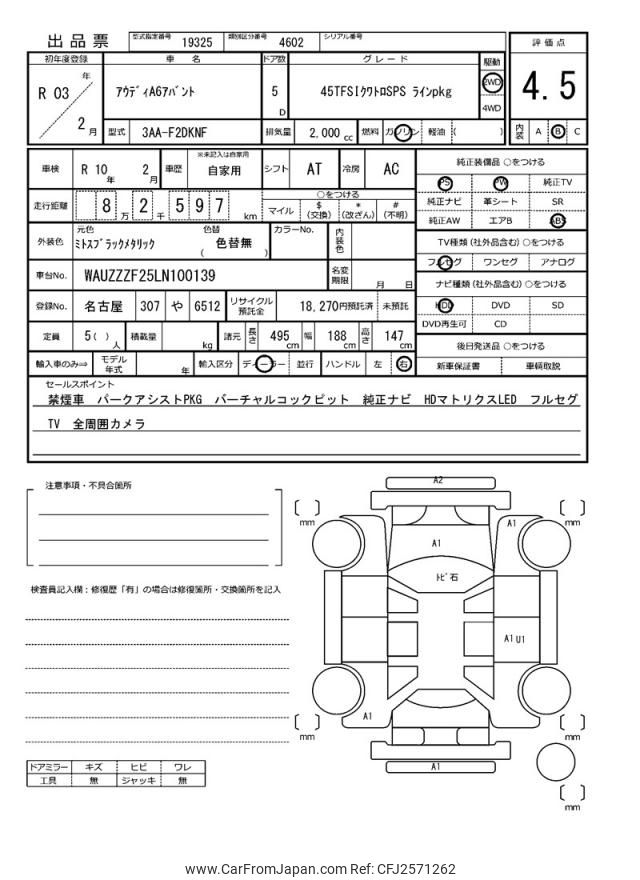 出品票 型式指定番号 19325 類別区分番号 4602 シリアル番号
初年度登録 車 名 ドア数 グレード 駆動 評価点
R 03 年 2 月 アウディA6アバント 5 D 45TFSIクワトロSPS ラインpkg 2WD 4WD 4.5
型式 3AA-F2DKNF 排気量 2,000 cc 燃料 ガソリン 軽油 ( ) 内装 A B C
車検 R 10 年 2 月 車歴 ※未記入は自家用 自家用 シフト AT 冷房 AC 純正装備品 ○をつける
PS PW 純正TV
走行距離 8 万 2 千 5 9 7 km ○をつける
マイル $ (交換) * (改ざん) # (不明)
純正ナビ 革シート SR
純正AW エアB ABS
外装色 元色 ミトスブラックメタリック 色替 ( 色替無 ) カラーNo. 内装色
TV種類 (社外品含む) ○をつける
フルセグ ワンセグ アナログ
車台No. WAUZZZF25LN100139 名変期限 月 日
ナビ種類 (社外品含む) ○をつける
登録No. 名古屋 307 や 6512 リサイクル預託金 18,270円預託済 未預託
HDD DVD SD
DVD再生可 CD
定員 5 ( ) 人 積載量 kg 諸元 長さ 495 cm 幅 188 cm 高さ 147 cm
後日発送品 ○をつける
輸入車のみ⇒ モデル年式 年 輸入区分 ディーラー 並行 ハンドル 左 右
新車保証書 車輌取説
セールスポイント
禁煙車 パークアシストPKG バーチャルコックピット 純正ナビ HDマトリクスLED フルセグ
TV 全周囲カメラ
注意事項・不具合箇所
検査員記入欄：修復歴「有」の場合は修復箇所・交換箇所を記入
A2
mm
mm
A1
A1
トビ石
A1 U1
A1
mm
mm
A1
mm
ドアミラー キズ ヒビ ワレ
工具 無 ジャッキ 無
www.CarFromJapan.com Ref: CFJ2571262